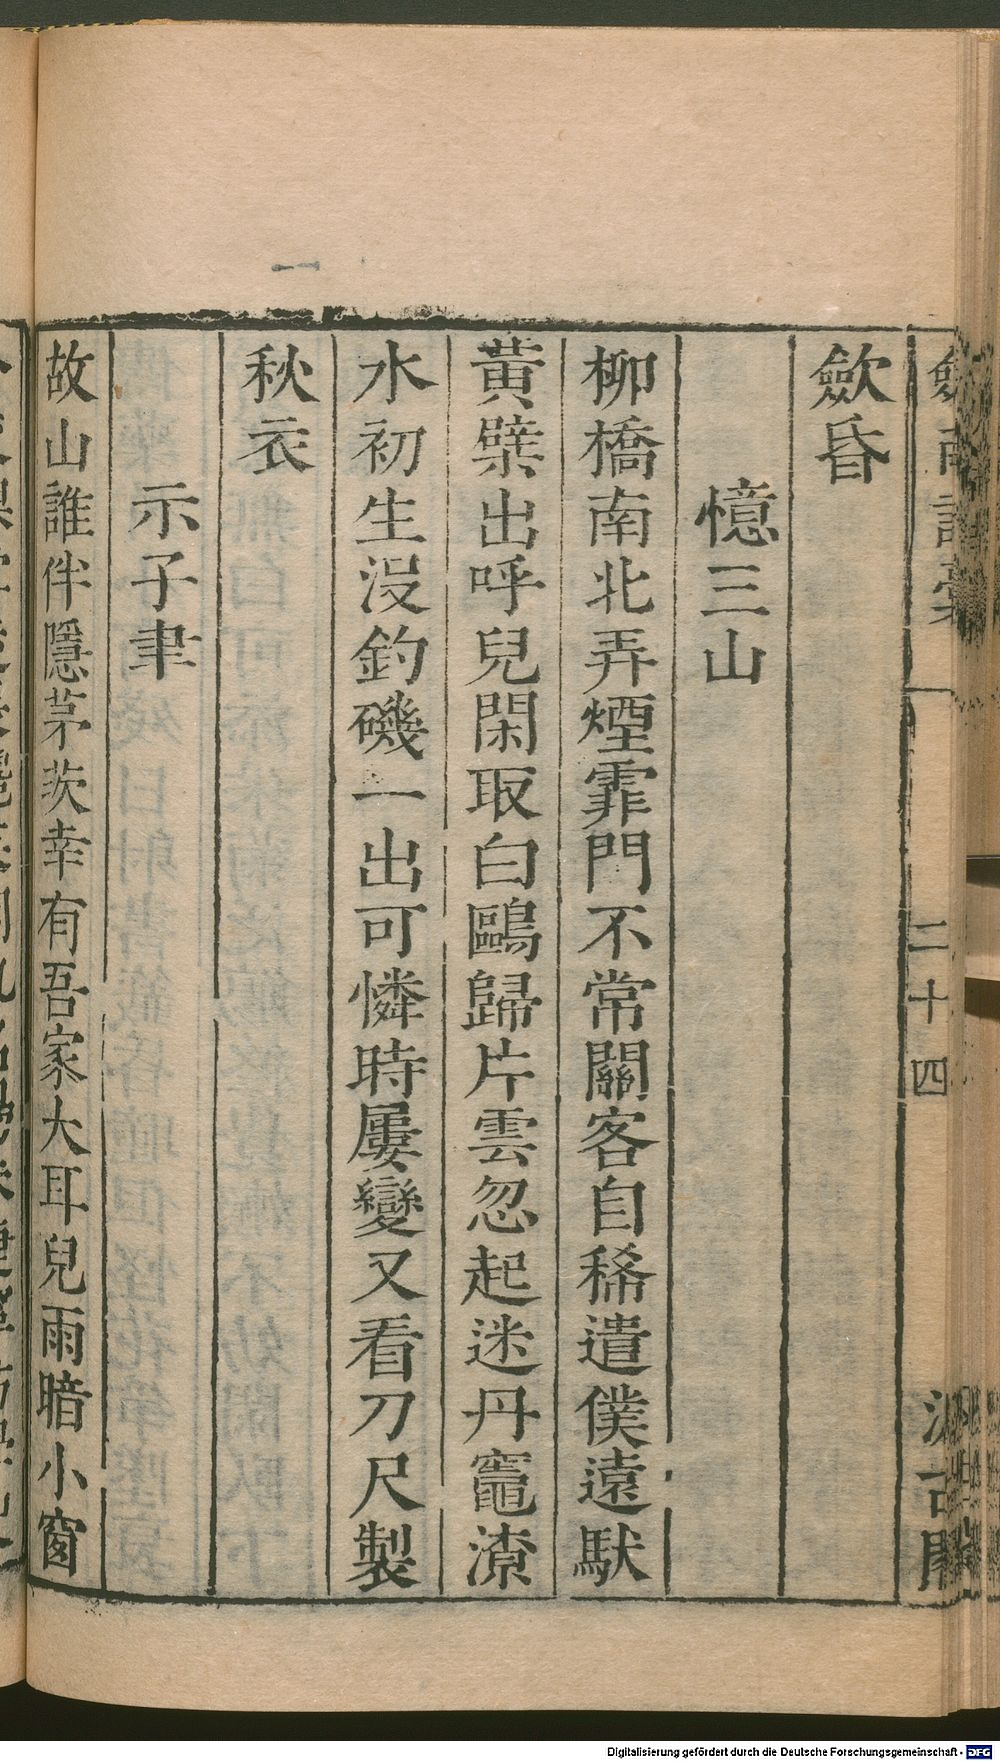 歛昏
憶三山
柳橋南北弄煙霏門不常關客自稀遣僕遠馱
黃檗出呼兒閑取白鷗歸片雲忽起迷丹竈潦
水初生沒釣磯一出可憐時屢變又看刀尺製
秋衣
示子聿
故山誰伴隱茅茨幸有吾家大耳兒雨暗小窗
二十四
Digitalisierung gefördert durch die Deutsche Forschungsgemeinschaft - DFG